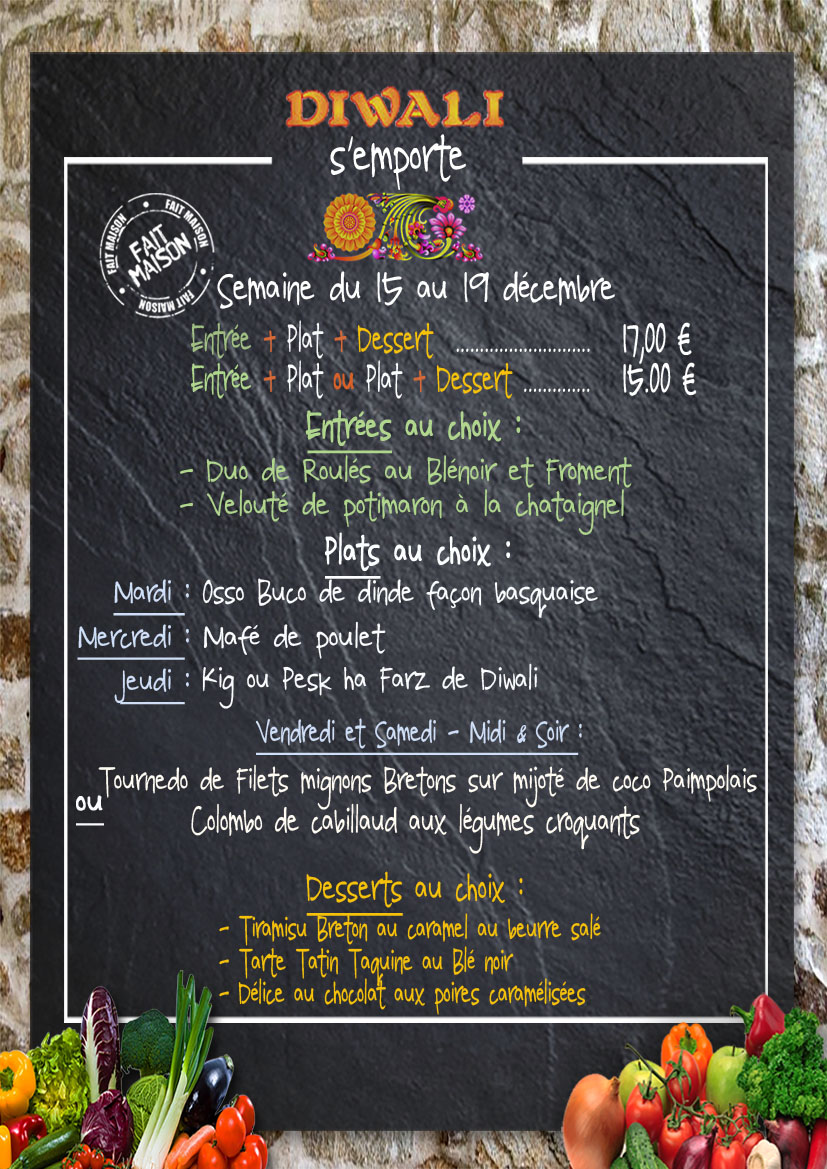 DIWALI
s'emporte
FAIT MAISON
FAIT MAISON
FAIT MAISON
FAIT MAISON
Semaine du 15 au 19 décembre
Entrée + Plat + Dessert ............................ 17,00 €
Entrée + Plat ou Plat + Dessert .............. 15.00 €
Entrées au choix :
- Duo de Roulés au Blénoir et Froment
- Velouté de potimaron à la chataignel
Plats au choix :
Mardi : Osso Buco de dinde façon basquaise
Mercredi : Mafé de poulet
Jeudi : Kig ou Pesk ha Farz de Diwali
Vendredi et Samedi - Midi & Soir :
Tournedo de Filets mignons Bretons sur mijoté de coco Paimpolais
ou
Colombo de cabillaud aux légumes croquants
Desserts au choix :
- Tiramisu Breton au caramel au beurre salé
- Tarte Tatin Taquine au Blé noir
- Délice au chocolat aux poires caramélisées